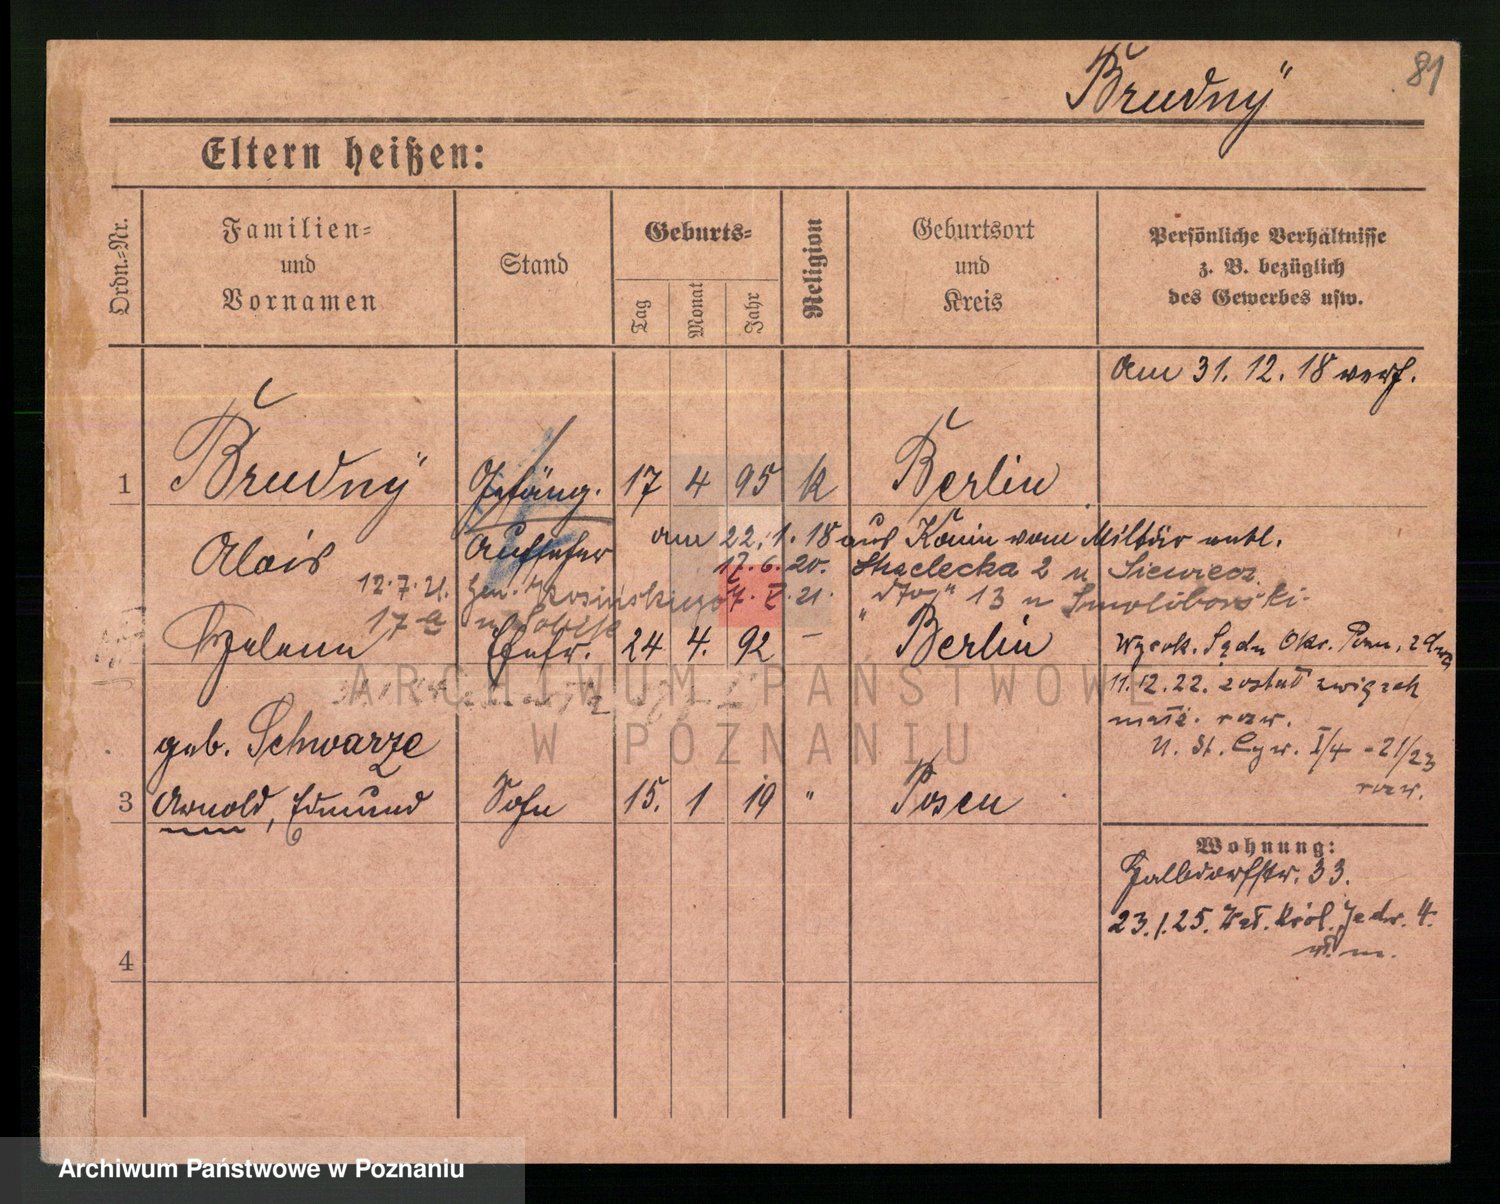 Brudnÿ
81
Eltern heißen:
Ordn.-Nr.
Familien-
und
Vornamen
Stand
Geburts-
Tag
Monat
Jahr
Religion
Geburtsort
und
Kreis
Persönliche Verhältnisse
z. B. bezüglich
des Gewerbes usw.
am 31. 12. 18 verh.
1 Brudnÿ Gefäng. 17 4 95 k Berlin
Alois Aufseher
am 22. 1. 18 aus Konin vom Militär entl.
17. 6. 20. Strzelecka 2 u Siewierz
12.7.21. Gen. Kosinskiego 21. "dtog" 13 u Smolibowski.
17
Helene Ehefr. 24 4. 92 – Berlin
geb. Schwarze
Wyrok. Sądu Okr. Pozn. z dnia
11.12.22. został związek
małż. rozw.
U. St. Cyw. I/4 - 21/23
rozw.
3 Arnold, Edmund Sohn 15. 1 19 " Posen
Wohnung:
Halbdorfstr. 33.
23.1.25. Król. Jadw. 4.
4
ARCHIWUM PAŃSTWOWE
W POZNANIU
Archiwum Państwowe w Poznaniu